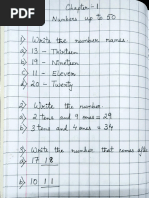 Chapter - 1
Numbers up to 50
1) Write the number names.
a) 13 - Thirteen
b) 19 - Nineteen
c) 11 - Eleven
d) 20 - Twenty
2)
a) 2 tens and 9 ones = 29
b) 3 tens and 4 ones = 34
3) Write the number that comes
a) 17 18
b) 10 11